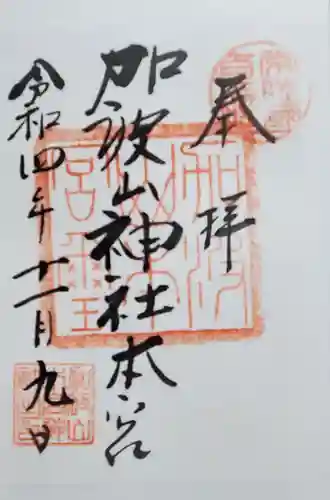 奉拝
加波山神社本宮
令和四年十一月九日